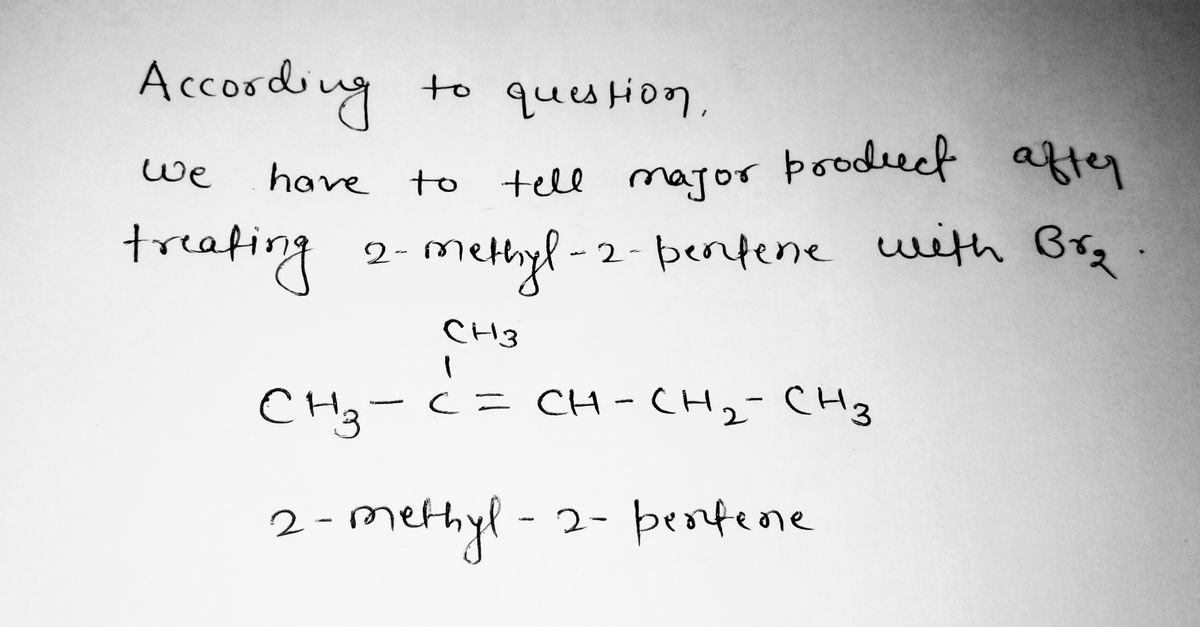 According to question,
we have to tell major product after
treating 2-methyl-2-pentene with Br2.
CH3
|
CH3-C=CH-CH2-CH3
2-methyl-2-pentene